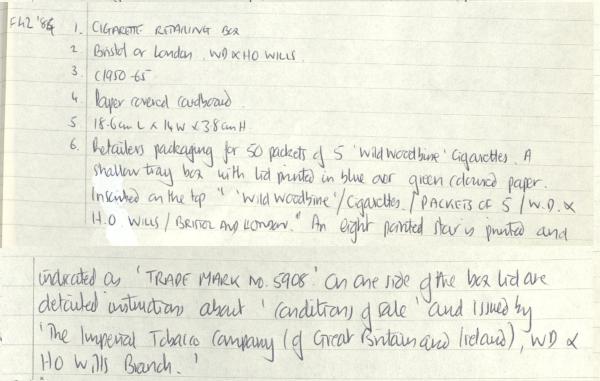 FH2 '86 1. CIGARETTE RETAILING BOX
2 Bristol or London. WD & HO WILLS.
3. C1950-65
4. Paper covered cardboard.
5 18.6cm L x 14 W x 3.8cm H.
6. Retailers packaging for 50 packets of 5 'Wild Woodbine' Cigarettes. A
shallow tray box with lid printed in blue over green coloured paper.
Inscribed on the top " 'Wild Woodbine' / Cigarettes. / PACKETS OF 5 / W.D. &
H.O. WILLS / BRISTOL AND LONDON." An eight pointed star is printed and
indicated as 'TRADE MARK NO. 5908.' On one side of the box lid are
detailed instructions about 'conditions of sale' and issued by
'The Imperial Tobacco Company (of Great Britain and Ireland), WD &
HO Wills Branch.'